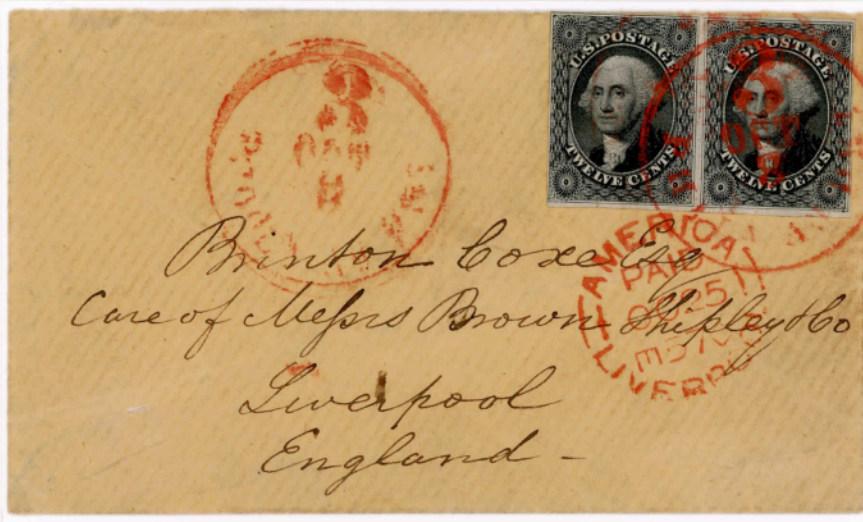 U.S. POSTAGE
TWELVE CENTS
U.S. POSTAGE
TWELVE CENTS
AMERICA
PAID
25
LIVERPOOL
OCT
Brinton Coxe Esq
Care of Messrs Brown Shipley & Co
Liverpool
England -